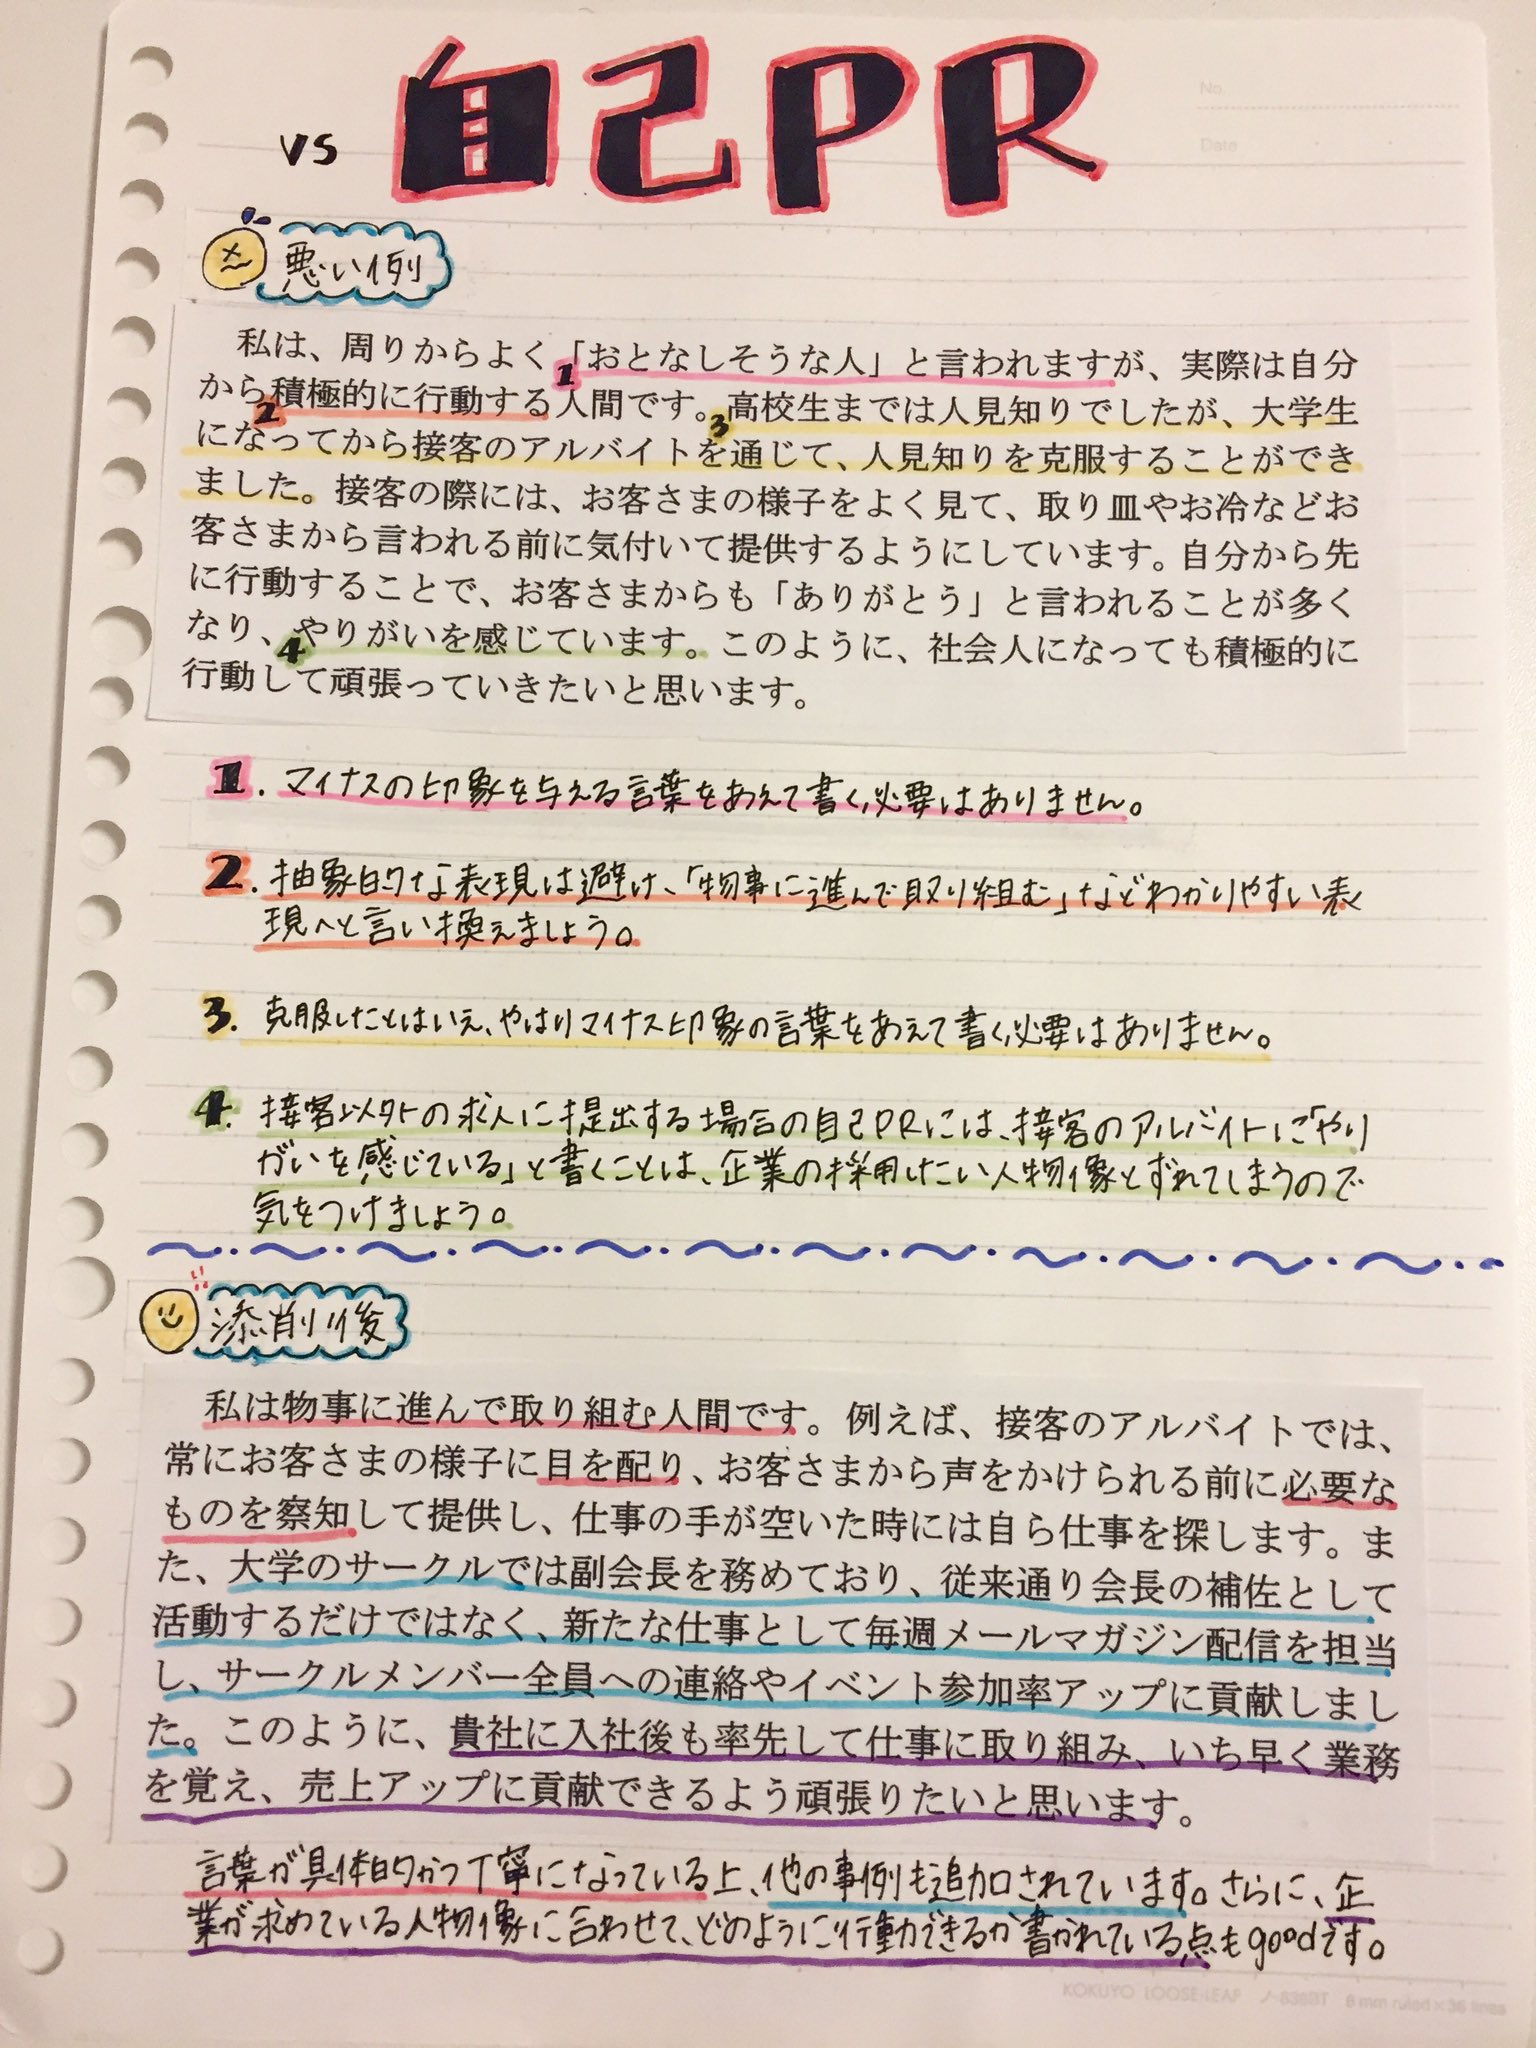 No.
Date
vs 自己PR
悪い例
私は、周りからよく「おとなしそうな人」と言われますが、実際は自分
から積極的に行動する人間です。高校生までは人見知りでしたが、大学生
になってから接客のアルバイトを通じて、人見知りを克服することができ
ました。接客の際には、お客さまの様子をよく見て、取り皿やお冷などお
客さまから言われる前に気付いて提供するようにしています。自分から先
に行動することで、お客さまからも「ありがとう」と言われることが多く
なり、やりがいを感じています。このように、社会人になっても積極的に
行動して頑張っていきたいと思います。
1
2
3
4
1. マイナスの印象を与える言葉をあえて書く必要はありません。
2. 抽象的な表現は避け、「物事に進んで取り組む」などわかりやすい表
現へと言い換えましょう。
3. 克服したとはいえ、やはりマイナス印象の言葉をあえて書く必要はありません。
4. 接客以外の求人に提出する場合の自己PRには、接客のアルバイトに「やり
がいを感じている」と書くことは、企業の採用したい人物像とずれてしまうので
気をつけましょう。
添削後
私は物事に進んで取り組む人間です。例えば、接客のアルバイトでは、
常にお客さまの様子に目を配り、お客さまから声をかけられる前に必要な
ものを察知して提供し、仕事の手が空いた時には自ら仕事を探します。ま
た、大学のサークルでは副会長を務めており、従来通り会長の補佐として
活動するだけではなく、新たな仕事として毎週メールマガジン配信を担当
し、サークルメンバー全員への連絡やイベント参加率アップに貢献しまし
た。このように、貴社に入社後も率先して仕事に取り組み、いち早く業務
を覚え、売上アップに貢献できるよう頑張りたいと思います。
言葉が具体的かつ丁寧になっている上、他の事例も追加されています。さらに、企
業が求めている人物像に合わせて、どのように行動できるか書かれている点もgoodです。
KOKUYO LOOSE-LEAF ノ-836BT 6 mm ruled×36 lines